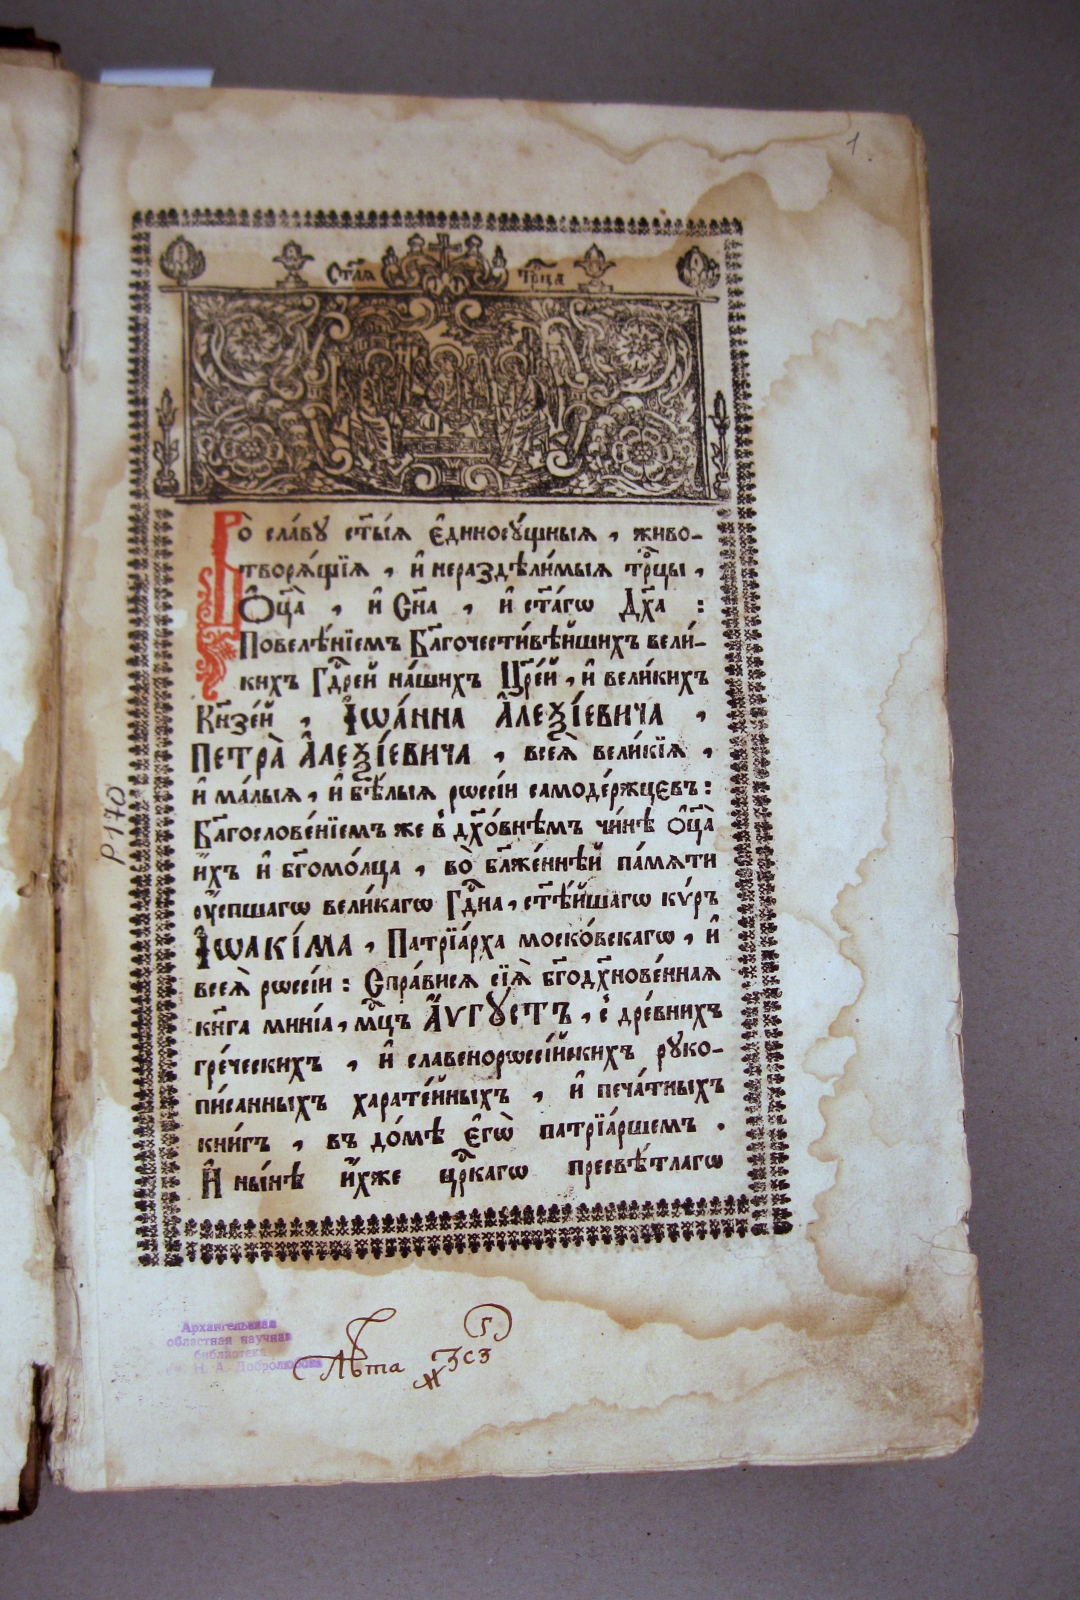 1.
Ст҃ая Трⷪ҇ца
Во̀ сла́вꙋ ст҃ы́ѧ є҆диносꙋ́щныѧ , живо-
творѧ́щїѧ , и҆ нераздѣли́мыѧ трⷪ҇цы ,
Ѻ҆ц҃а̀ , и҆ Сн҃а , и҆ ст҃а́гѡ Дх҃а :
Повелѣ́нїемъ Бл҃гочести́вѣйшихъ вели́-
кихъ Гдⷭ҇рей на́шихъ Цр҃е́й , и҆ вели́кихъ
Кн҃зе́й , І҆ѡа́нна А҆леѯі́евича ,
Петра̀ А҆леѯі́евича , всеѧ̀ вели́кїѧ ,
и҆ ма́лыѧ , и҆ бѣ́лыѧ рѡссі́и самоде́ржцєвъ :
Бл҃гослове́нїемъ же в̾ дх҃о́внѣмъ чи́нѣ ѻ҆ц҃а̀
и҆́хъ и҆ бг҃омо́лца , во̀ бл҃же́ннѣй па́мѧти
ᲂу҆се́пшагѡ вели́кагѡ Гдⷭ҇на , ст҃ѣ́йшагѡ кѵ́ръ
І҆ѡакі́ма , Патрїа́рха моско́вскагѡ , и҆
всеѧ̀ рѡссі́и : Спра́висѧ сїѧ̀ бг҃одх҃нове́ннаѧ
кни́га минї́а , мцⷭ҇ъ А҆́ѵгꙋстъ , с̾ дре́внихъ
гре́ческихъ , и҆ славенорѡссі́йскихъ рꙋко-
пи́санныхъ харате́йныхъ , и҆ печа́тныхъ
кни́гъ , въ до́мѣ є҆гѡ̀ патрїа́ршемъ .
И҆ ны́нѣ и҆́хже црⷭ҇кагѡ пресвѣ́тлагѡ
Р170
Архангельская
областная научная
библиотека
Н. А. Добролюбова
Лѣта ҂зсз